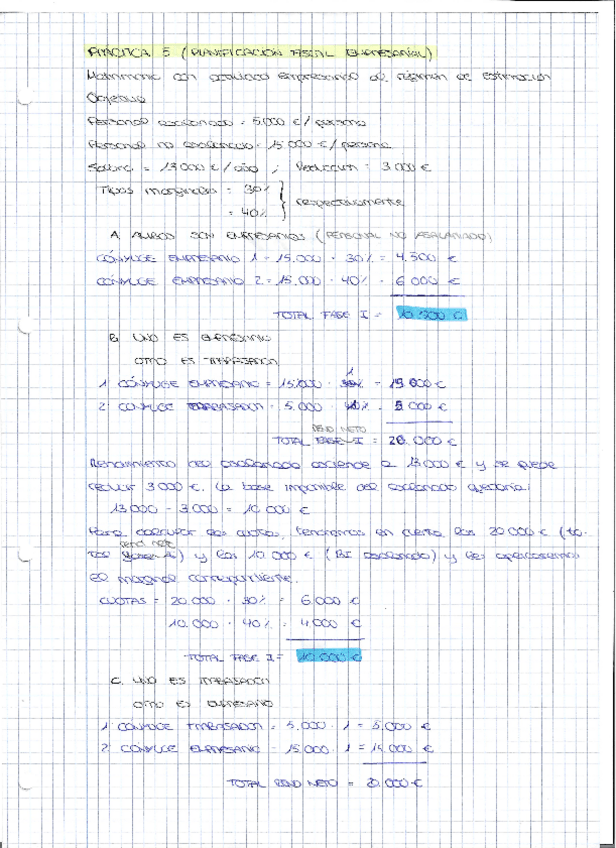 PRÁCTICA 5 (PLANIFICACIÓN FISCAL EMPRESARIAL)
Matrimonio con actividad empresarial del régimen de estimación
Objetiva
Personal asalariado = 5.000 €/persona
Personal no asalariado = 15.000 €/persona
Salario = 13.000 €/año ; Reducción = 3.000 €
Tipos marginales = 30%
= 40%
respectivamente
A. AMBOS SON EMPRESARIOS (PERSONAL NO ASALARIADO)
CÓNYUGE EMPRESARIO 1 = 15.000 · 30% = 4.500 €
CÓNYUGE EMPRESARIO 2 = 15.000 · 40% = 6.000 €
TOTAL FASE I = 10.500 €
B. UNO ES EMPRESARIO
OTRO ES TRABAJADOR
1 CÓNYUGE EMPRESARIO = 15.000 · 1 = 15.000 €
2 CÓNYUGE TRABAJADOR = 5.000 · 1 = 5.000 €
REND NETO
TOTAL FASE I = 20.000 €
Rendimiento del asalariado asciende a 13.000 € y se puede
reducir 3.000 €. La base imponible del asalariado quedaría:
13.000 - 3.000 = 10.000 €
Para calcular las cuotas, tendremos en cuenta los 20.000 € (to-
rend. neto
tal) y los 10.000 € (BI asalariado) y les aplicaremos
el marginal correspondiente.
CUOTAS = 20.000 · 30% = 6.000 €
10.000 · 40% = 4.000 €
TOTAL FASE I = 10.000 €
C. UNO ES TRABAJADOR
OTRO ES EMPRESARIO
1 CÓNYUGE TRABAJADOR = 5.000 · 1 = 5.000 €
2 CÓNYUGE EMPRESARIO = 15.000 · 1 = 15.000 €
TOTAL REND NETO = 20.000 €